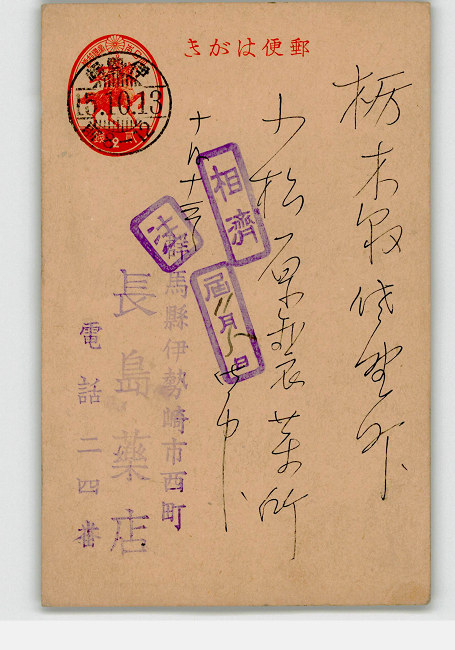 郵便はがき
伊勢崎
15.10.13
栃木縣佐野町
小松原製薬所
御中
十月十三日
相濟
注
屆 11月 日
群馬縣伊勢崎市西町
長島藥店
電話二四番